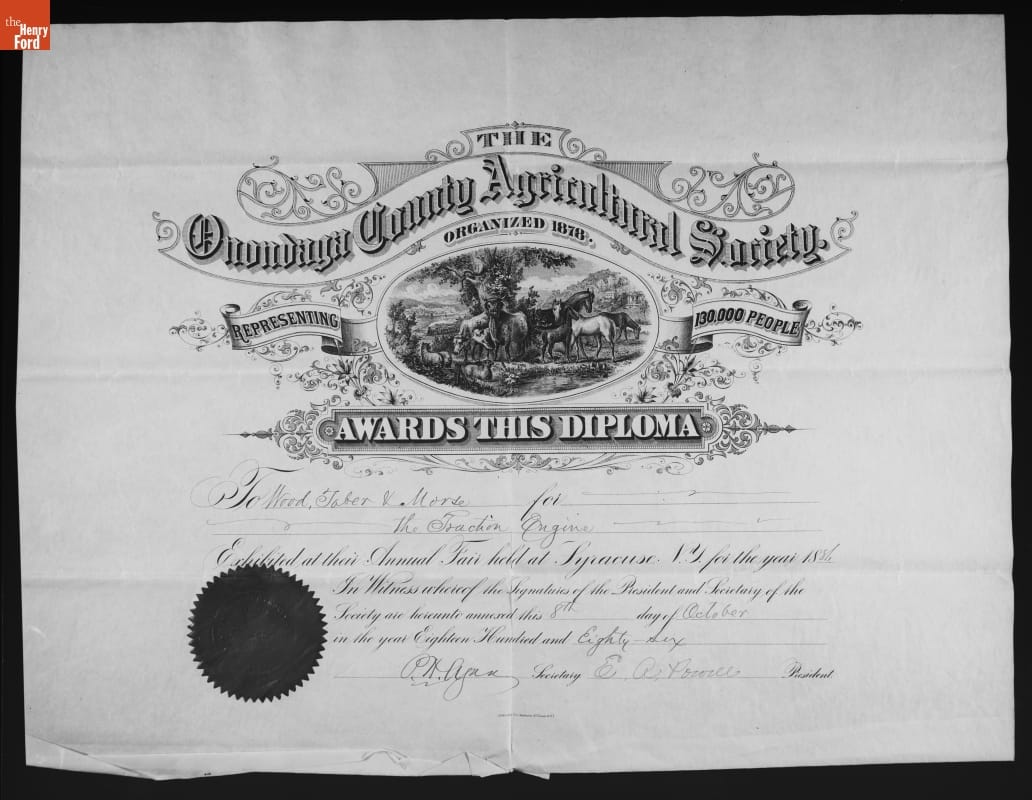 the
Henry
Ford
THE
Onondaga County Agricultural Society.
ORGANIZED 1878.
REPRESENTING
130,000 PEOPLE
AWARDS THIS DIPLOMA
To Wood, Taber & Morse for
the Traction Engine
Exhibited at their Annual Fair held at Syracuse, N.Y. for the year 1886
In Witness whereof the Signatures of the President and Secretary of the
Society are hereunto annexed this 8th day of October
in the year Eighteen Hundred and Eighty-six
Secretary E. A. Powell President